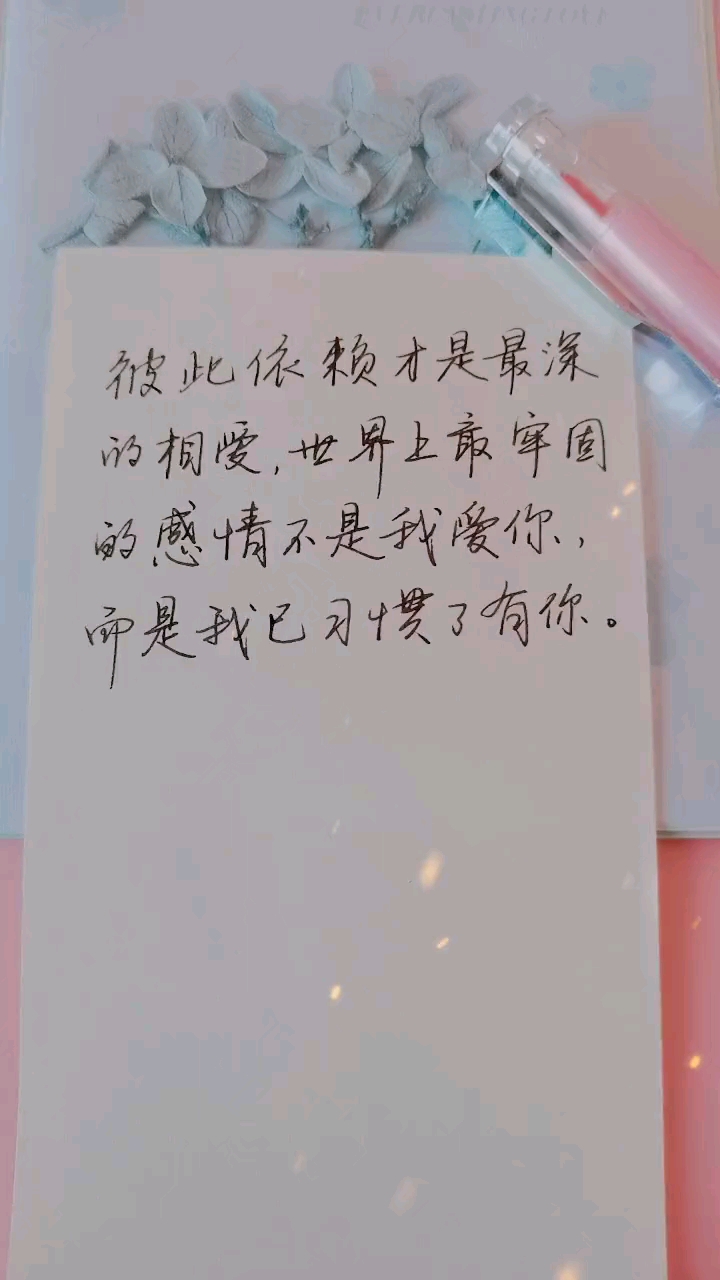 彼此依赖才是最深
的相愛,世界上最牢固
的感情不是我愛你,
而是我已习惯了有你。